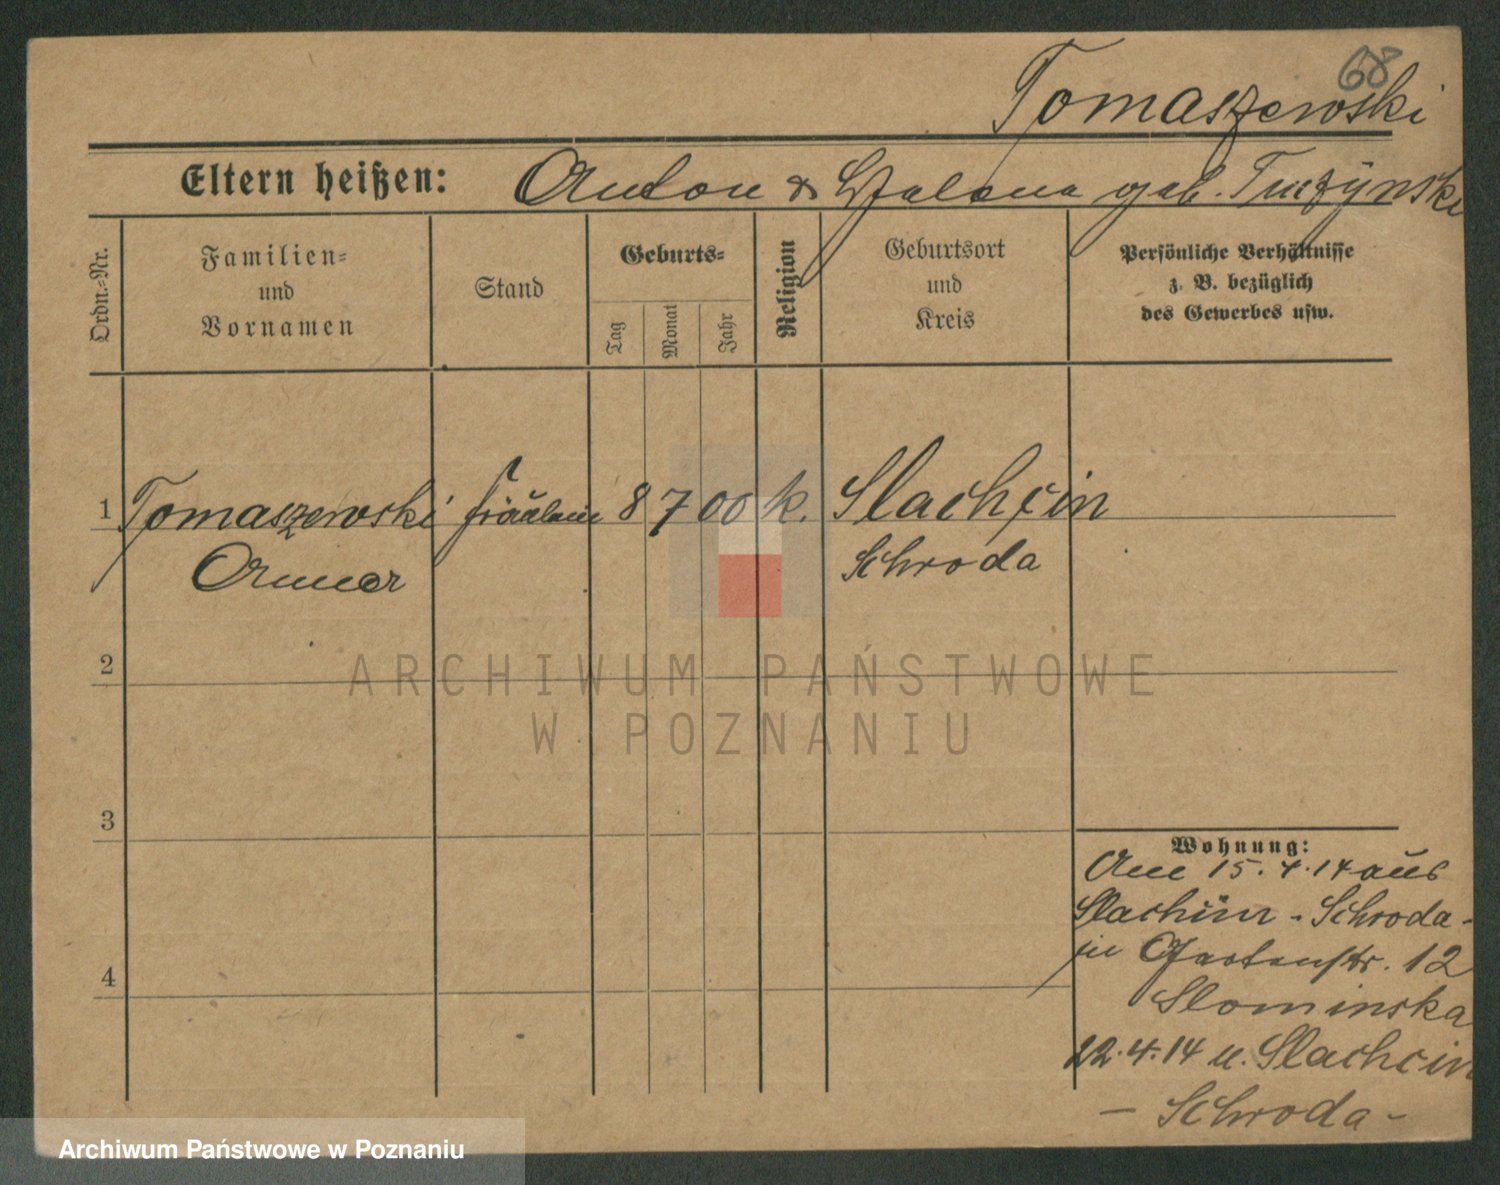 68
Tomaszewski
Eltern heißen: Anton & Helena geb. Tuczynski
Ordn.-Nr.
Familien-
und
Vornamen
Stand
Geburts-
Tag
Monat
Jahr
Religion
Geburtsort
und
Kreis
Persönliche Verhältnisse
z. B. bezüglich
des Gewerbes usw.
1 Tomaszewski Fräulein 8 7 00 k. Slachcin
Schroda
2
3
4
Wohnung:
Am 15. 4. 14 aus
Slachcin - Schroda -
in Gartenstr. 12
Slominska
22. 4. 14 n. Slachcin
- Schroda -
ARCHIWUM PAŃSTWOWE
W POZNANIU
Archiwum Państwowe w Poznaniu